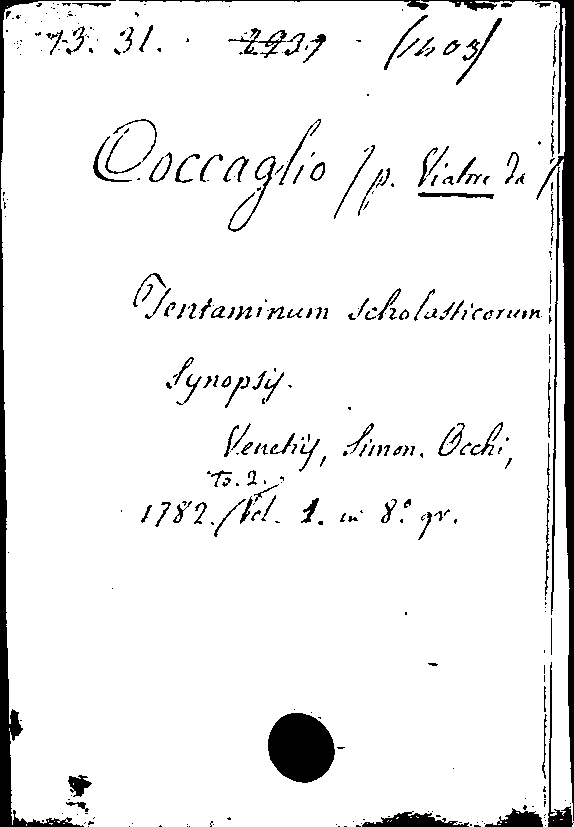 13. 31. 2939 (1403)
Coccaglio / p. Viatore da /
Tentaminum scholasticorum
Synopsis.
Venetijs, Simon. Occhi,
to. 2.
1782. / Vol. 1. in 8.° gr.